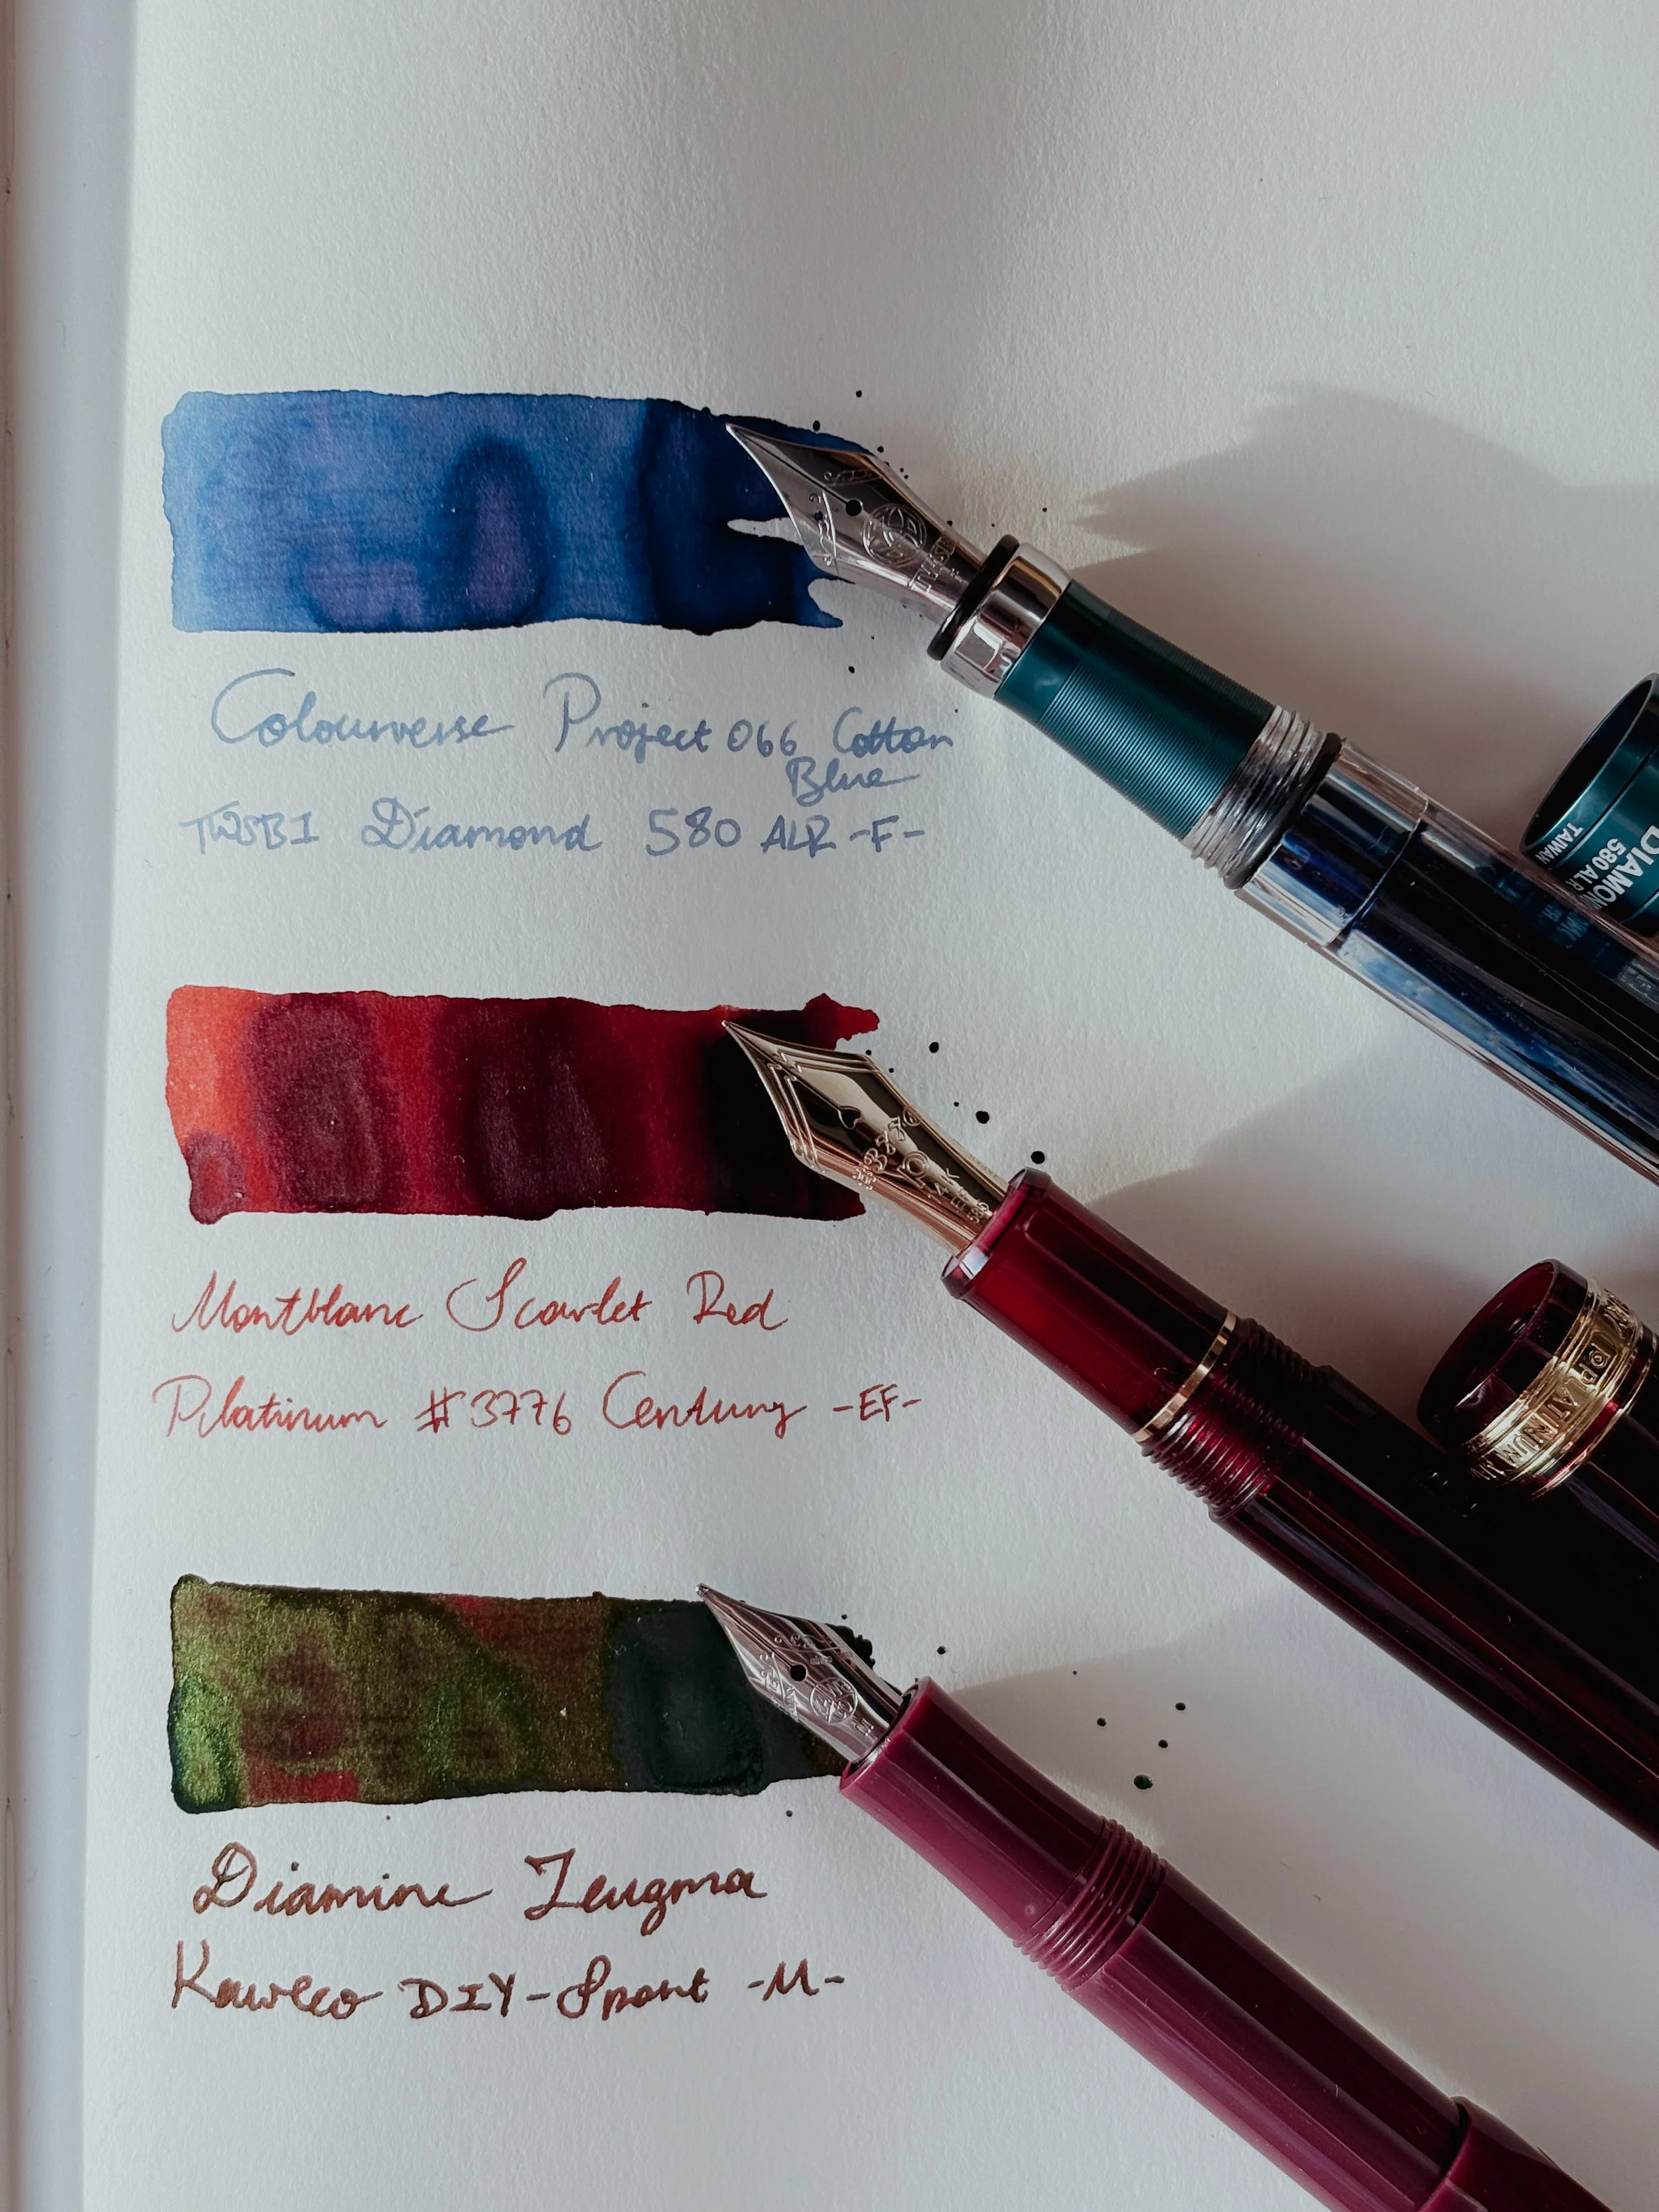 Colourverse Project 066 Cotton
Blue
TWSBI Diamond 580 ALR -F-
DIAMON
580 ALR
TAIWAN
Montblanc Scarlet Red
Platinum #3776 Century -EF-
3776
14K
PLATINUM
Diamine Zeugma
Kaweco DIY-Sport -M-